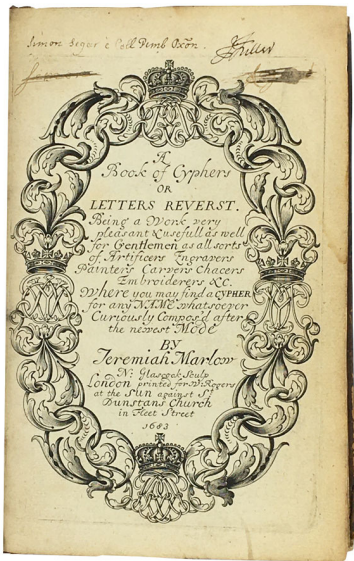 Simon Segar è Coll Pemb Oxōn.
A
Book of Cyphers
OR
LETTERS REVERST.
Being a Work very
pleasant & usefull as well
for Gentlemen as all sorts
of Artificers Engravers
Painters Carvers Chacers
Embroiderers &c.
Where you may find a CYPHER
for any NAME whatsoever
Curiously Compos'd after
the newest Mode
BY
Jeremiah Marlow
N: Glascock Sculp
London printed for W: Rogers
at the Sun against St
Dunstans Church
in Fleet Street
1683